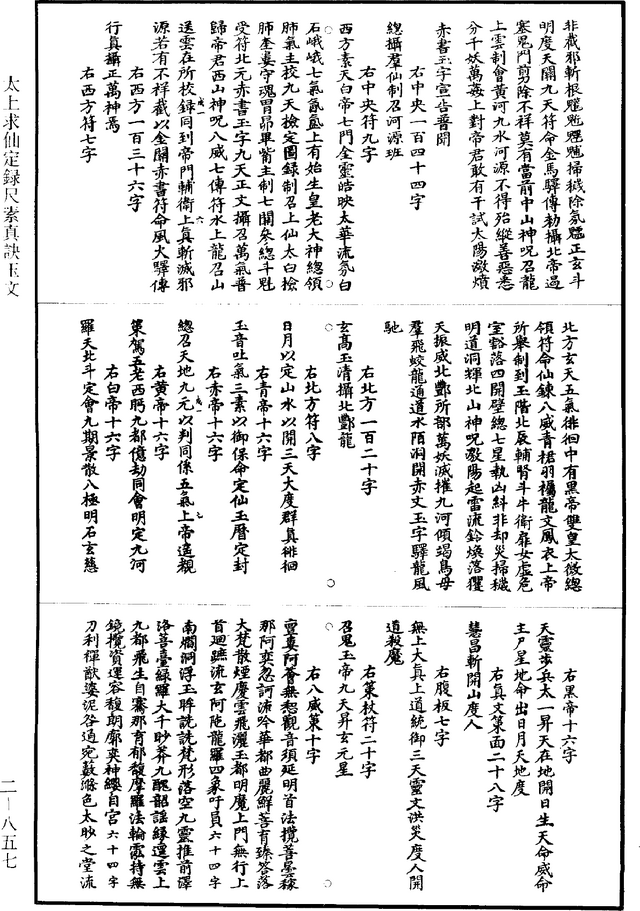 非截邪斬根魑魅魍魎掃穢除氛魖正玄斗
明度天關九天符命金馬驛傳勑攝北帝遏
塞鬼門剪除不祥莫有當前中山神呪召龍
上雲制會黃河九水河源不得殆縱善惡悉
分千妖萬姦上對帝君敢有干試太陽激憤
赤書玉字宣告普聞
右中央一百四十四字
總攝羣仙制召河源班
右中央符九字
西方素天白帝七門金靈皓映太華流氛白
石峨峨七氣氤氳上有始生皇老大神總領
肺氣主校九天檢定圖錄制召上仙太白檢
肺奎婁守魂胃昴畢觜主制七關參總斗魁
受符北元赤書玉字九天正文攝召萬氣普
歸帝君西山神呪八威七傳符水上龍召山
送雲在所校錄同到帝門輔衞上真斬滅邪
源若有不祥截以金關赤書符命風火驛傳
右西方一百三十六字
行真攝正萬神焉
右西方符七字
北方玄天五氣徘徊中有黑帝雙皇太微總
領符命仙鍊八威青裙羽襹龍文鳳衣上帝
所舉制到玉階北辰輔腎斗牛衞扉女虛危
室豁落四開壁總七星執凶糾非却災掃穢
明道洞輝北山神呪激陽起雷流鈴煥落玃
天振威北酆所部萬妖滅摧九河傾竭鳥母
羣飛蛟龍通道水陌洞開赤文玉字驛龍風
馳
右北方一百二十字
玄高玉清攝北酆龍
右北方符八字
日月以定山水以開三天大度群真徘徊
右青帝十六字
玉音吐氣三素以御保命定仙玉曆定封
右赤帝十六字
總召天地九元以判同係五氣上帝遙觀
右黃帝十六字
策駕五老西眄九都億劫同會明定九河
右白帝十六字
羅天北斗定會九期景散八極明石玄慈
右黑帝十六字
天靈步兵太一昇天在地開日生天命威命
主尸星地命出日月天地度
右真文策面二十八字
慧昌斬開山度人
右腹板七字
無上大真上道統御三天靈文洪災度人開
道殺魔
右策杖符二十字
召鬼玉帝九天昇玄元星
右八威菓十字
亶婁阿薈無惒觀音須延明首法攬菩曇稼
那阿奕忽訶流吟華都曲麗鮮菩育臻答落
大梵散煙慶雲飛灑玉都明魔上門無行上
首迴蹠流玄阿陁龍羅四象吁員六十四字
南爓洞浮玉眸詵詵梵形落空九靈推前澤
洛菩臺綠羅大千眇莽九醜韶謡緣邅雲上
九都飛生自騫那育郁馥摩羅法輪霐持無
鏡攬資運容馥朗廓奕神纓自宮六十四字
刀利禪猷婆泥咎通宛藪滌色太眇之堂流
太上求仙定錄尺素真訣玉文
二－八五七